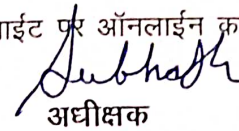 ाईट पर ऑनलाईन क
Subhash
अधीक्षक